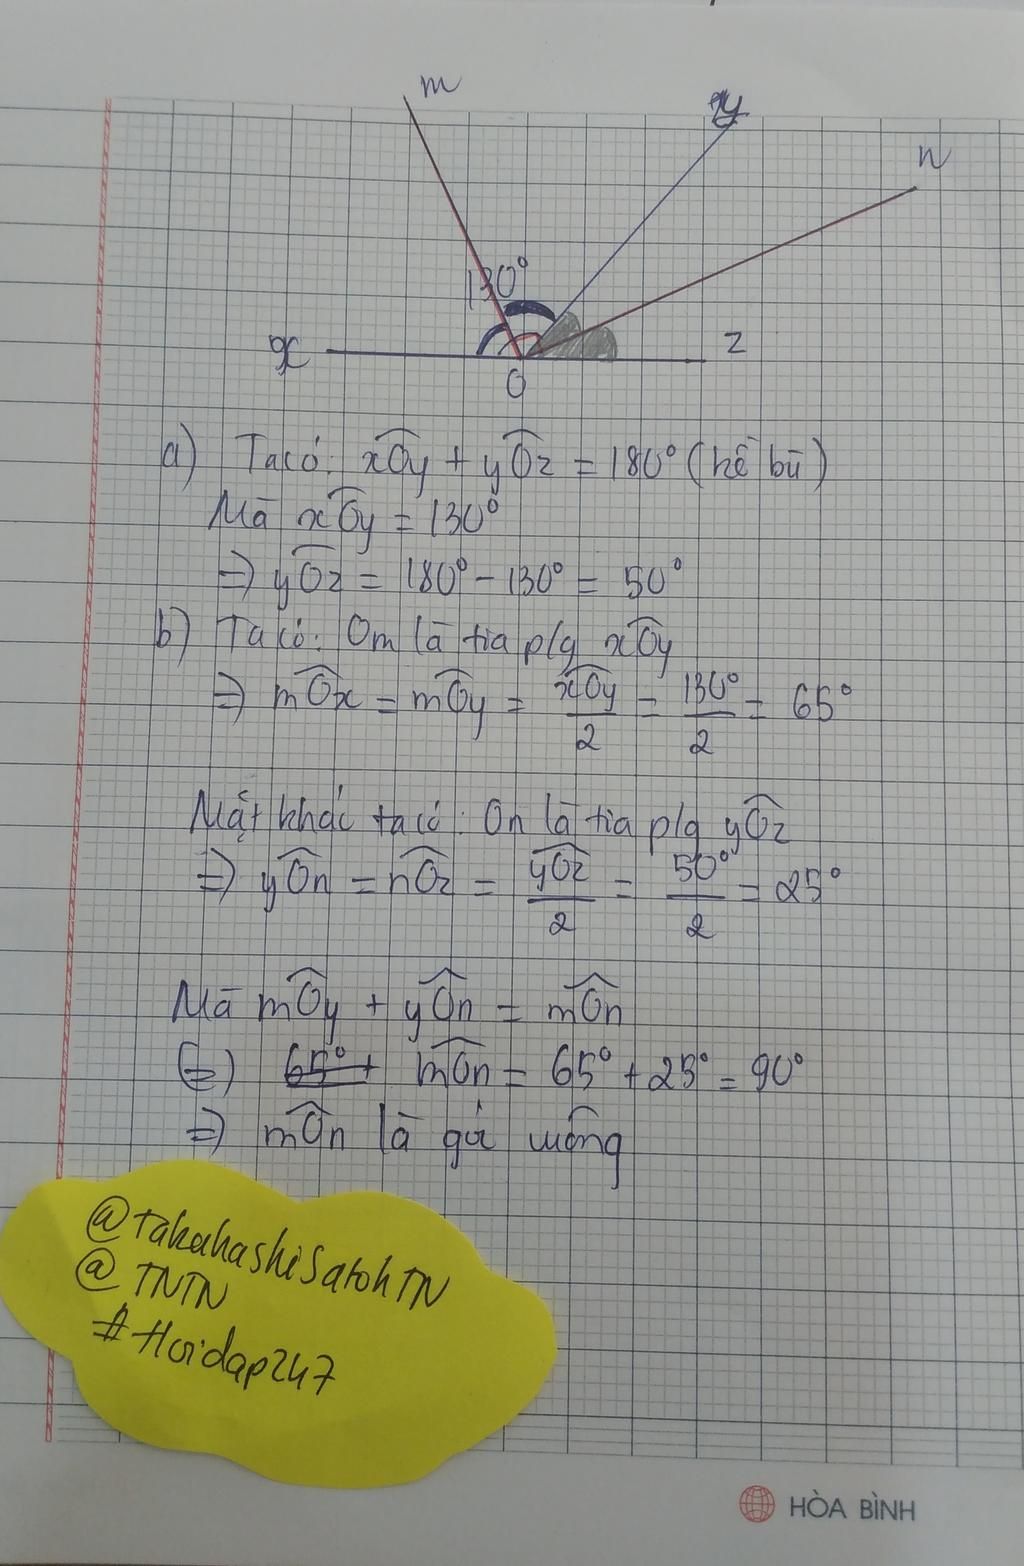 m
y
n
130°
x
z
O
a) Ta có: xÔy + yÔz = 180° (kề bù)
Mà xÔy = 130°
=> yÔz = 180° - 130° = 50°
b) Ta có: Om là tia p/g xÔy
=> mÔx = mÔy = xÔy/2 = 130°/2 = 65°
Mặt khác ta có: On là tia p/g yÔz
=> yÔn = nÔz = yÔz/2 = 50°/2 = 25°
Mà mÔy + yÔn = mÔn
(=) mÔn = 65° + 25° = 90°
=> mÔn là góc vuông
@TakahashiSatohTN
@TNTN
#Hoidap247
HÒA BÌNH